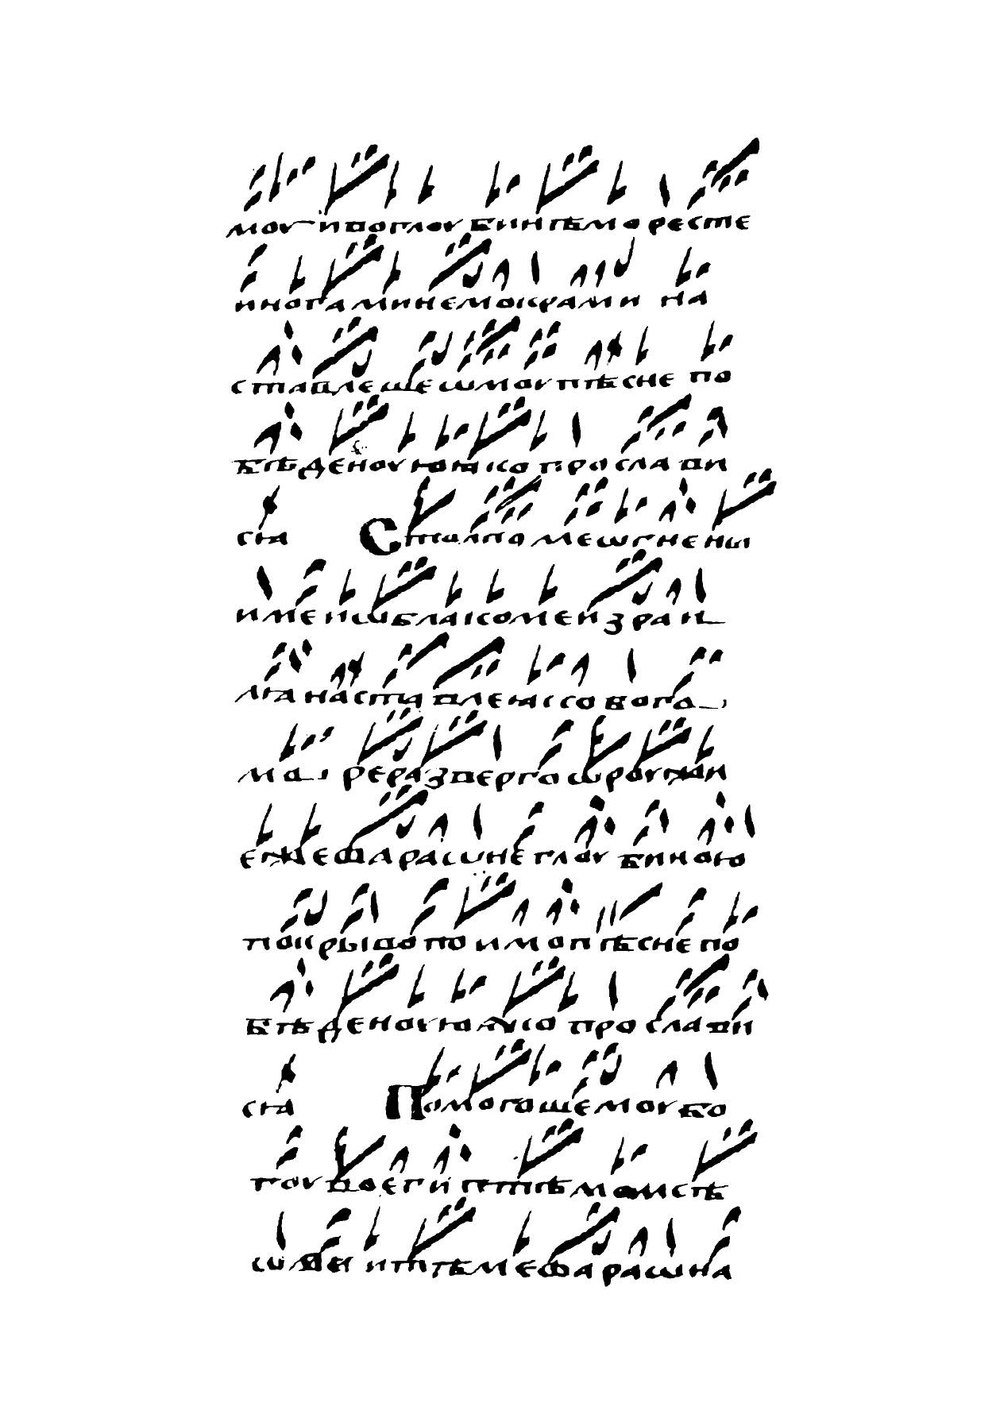 моу и во глоубинѣ море сте
и ногами немокрами на
ставлешемоу пѣсне по
бѣденоую ꙗко прослави
сѧ Столпомь ѡгнены
име и ѡблакоме Израи
лѧ наставлеꙗ со Бого
мо ре разверго ѡроужи
еже фараѡне глоубиною
покрыво поимо пѣсне по
бѣденоую ꙗко прослави
сѧ Помогошемоу Бо
гоу во египѣтѣ моисѣ
ѡви и тѣме фараѡна